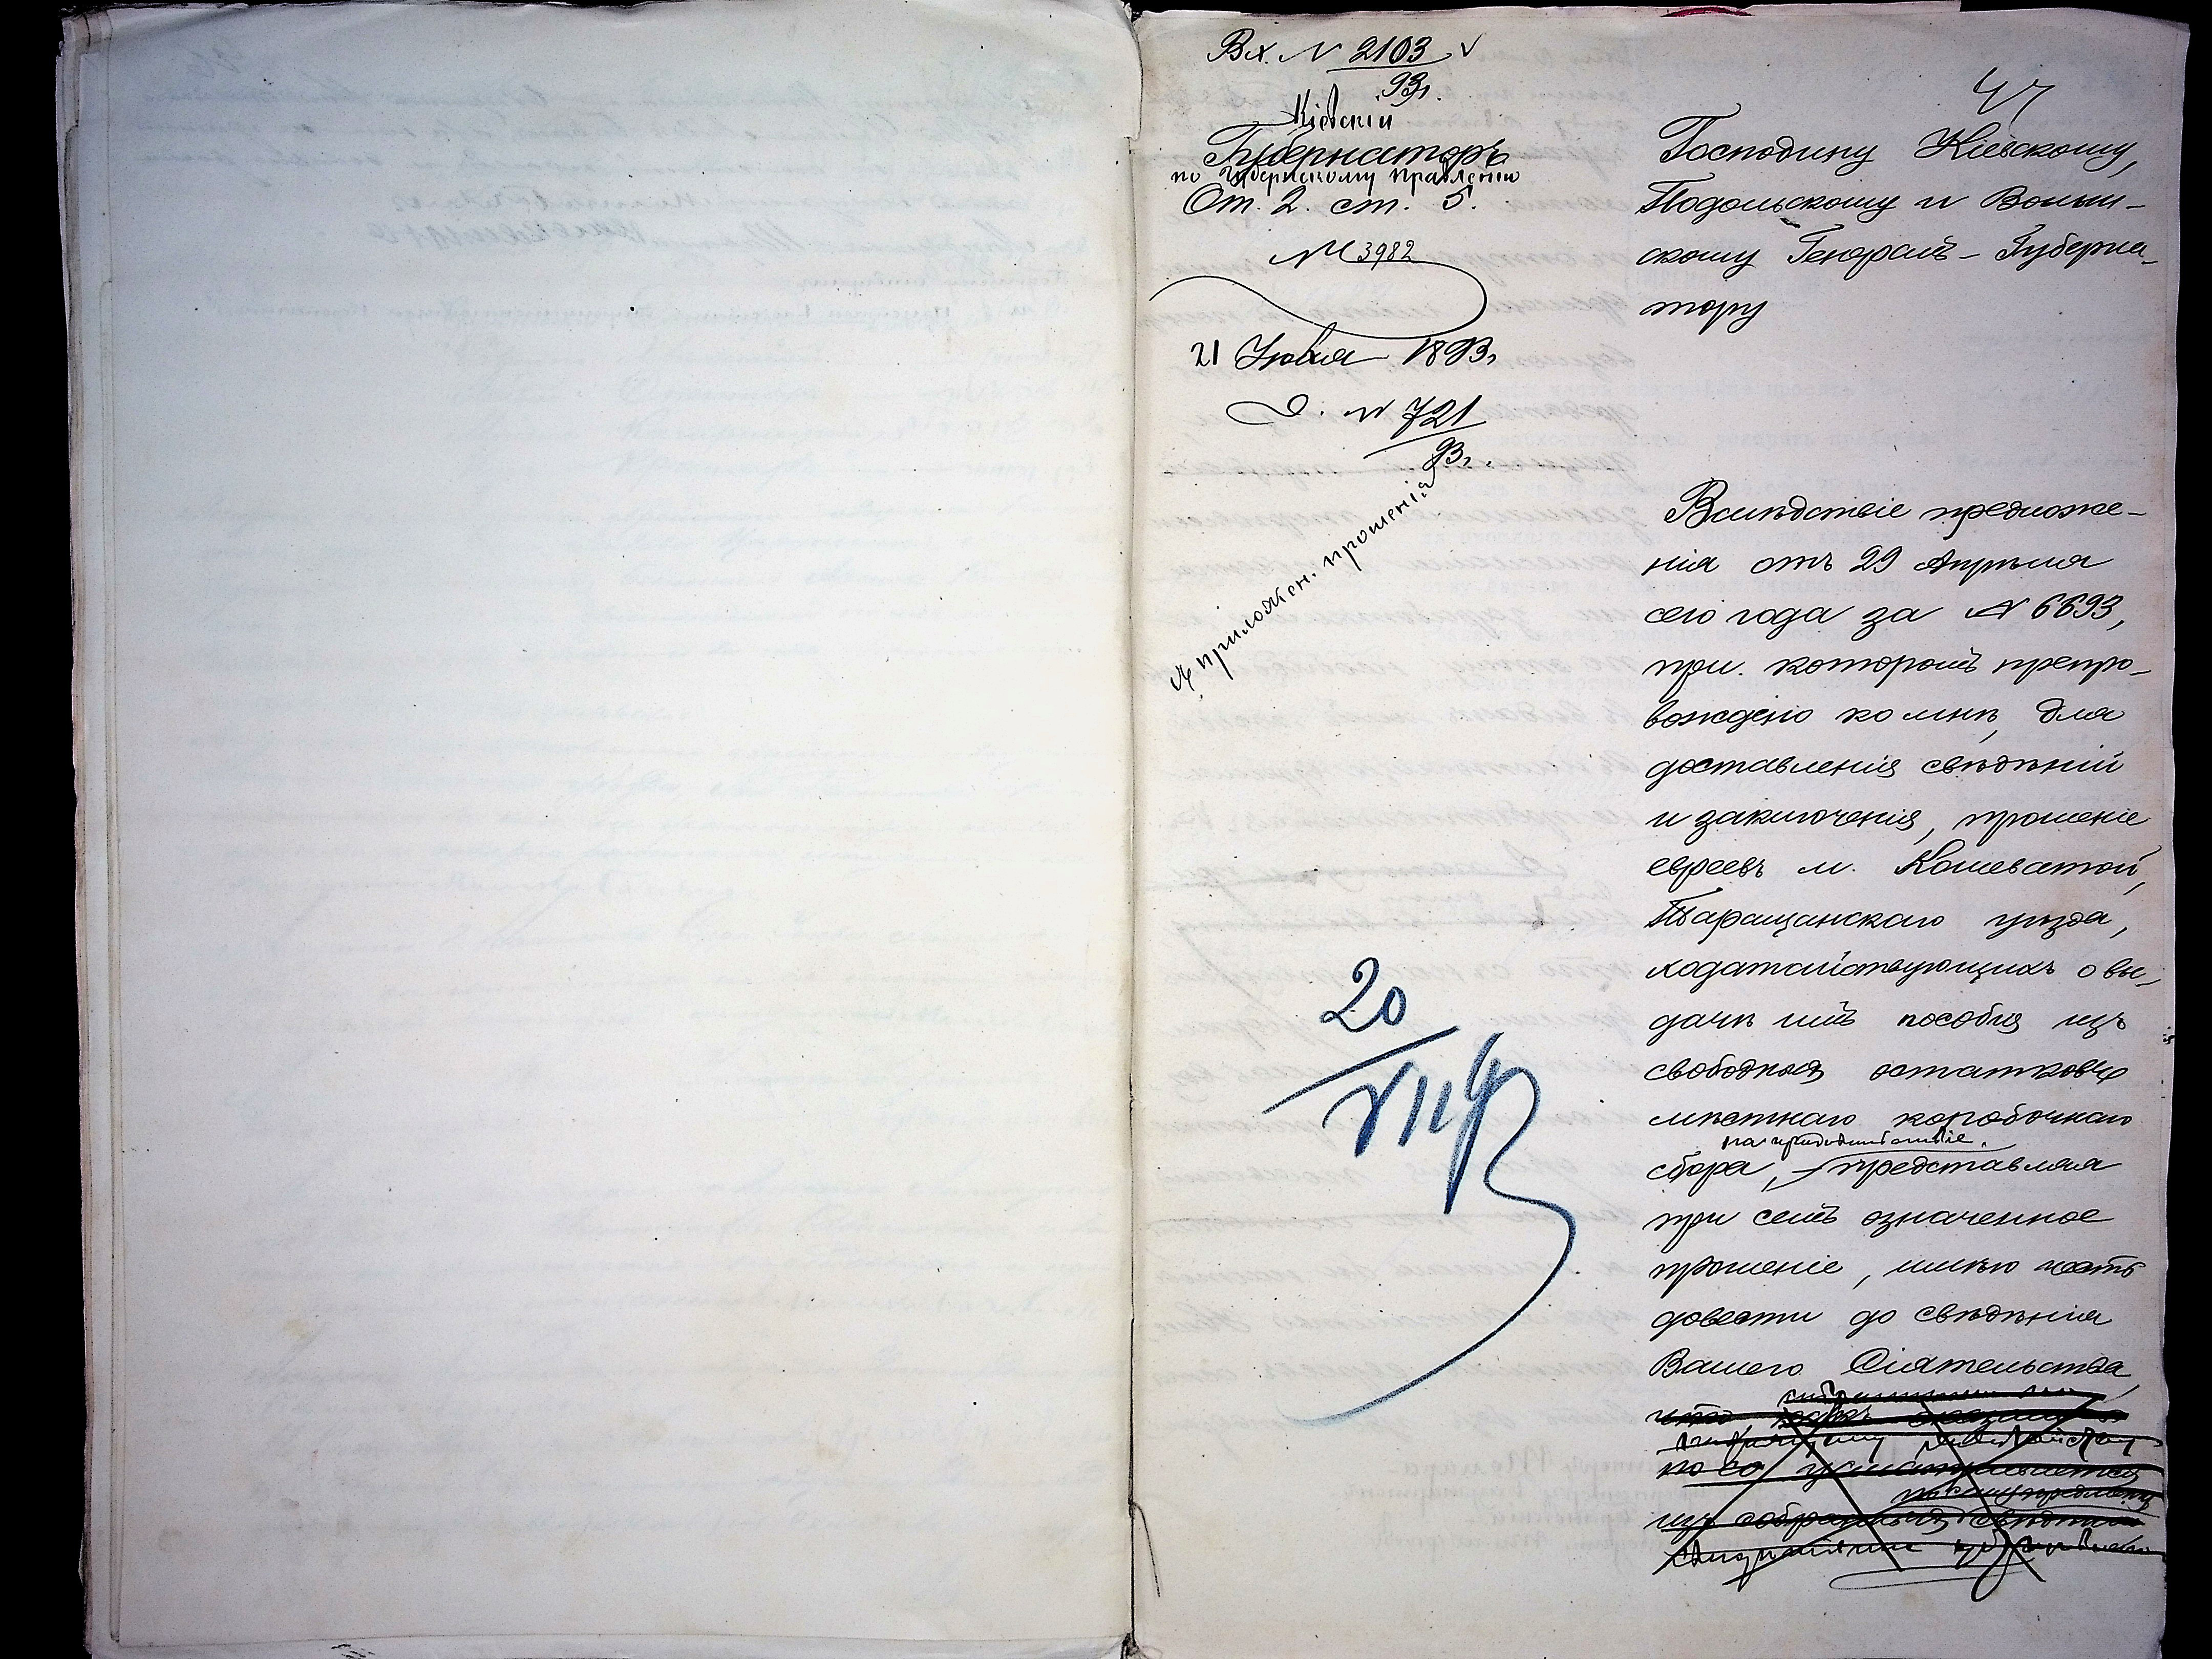 Вх. № 2103
93 г.
Кіевскій
Губернаторъ
по Губернскому Правленію
От. 2. ст. 5.
№ 3982
21 Іюля 1893 г.
Д. № 721
93 г.
Съ приложен. прошенія
20
VII 93
47
Господину Кіевскому,
Подольскому и Волын-
скому Генералъ-Губерна-
тору
Вслѣдствіе предложе-
нія отъ 29 Апрѣля
сего года за № 6693,
при которомъ препро-
вождено ко мнѣ, для
доставленія свѣдѣній
и заключенія, прошеніе
евреевъ м. Кошеватой,
Таращанскаго уѣзда,
ходатайствующихъ о вы-
дачѣ имъ пособія изъ
свободныхъ остатковъ
мѣстнаго коробочнаго
на продовольствіе,
сбора, представляя
при семъ означенное
прошеніе, имѣю честь
довести до свѣдѣнія
Вашего Сіятельства,
что,
изъ собранныхъ свѣдѣній